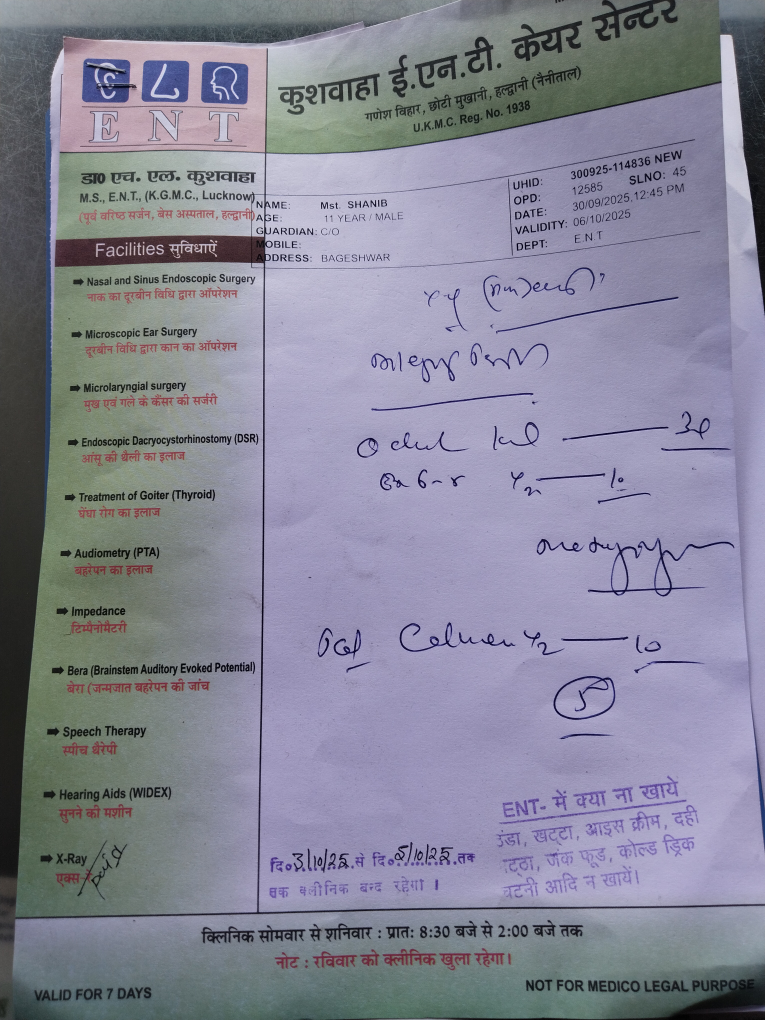 कुशवाहा ई.एन.टी. केयर सेन्टर
गणेश विहार, छोटी मुखानी, हल्द्वानी (नैनीताल)
U.K.M.C. Reg. No. 1938
E N T
डा0 एच. एल. कुशवाहा
M.S., E.N.T., (K.G.M.C., Lucknow)
(पूर्व वरिष्ठ सर्जन, बेस अस्पताल, हल्द्वानी)
NAME: Mst. SHANIB
AGE: 11 YEAR / MALE
GUARDIAN: C/O
MOBILE:
ADDRESS: BAGESHWAR
UHID: 300925-114836 NEW
OPD: 12585 SLNO: 45
DATE: 30/09/2025,12:45 PM
VALIDITY: 06/10/2025
DEPT: E N T
Facilities सुविधाऐं
Nasal and Sinus Endoscopic Surgery
नाक का दूरबीन विधि द्वारा ऑपरेशन
Microscopic Ear Surgery
दूरबीन विधि द्वारा कान का ऑपरेशन
Microlaryngial surgery
मुख एवं गले के कैंसर की सर्जरी
Endoscopic Dacryocystorhinostomy (DSR)
आंसू की थैली का इलाज
Treatment of Goiter (Thyroid)
घेंघा रोग का इलाज
Audiometry (PTA)
बहरेपन का इलाज
Impedance
टिम्पैनोमैटरी
Bera (Brainstem Auditory Evoked Potential)
बेरा (जन्मजात बहरेपन की जांच
Speech Therapy
स्पीच थैरेपी
Hearing Aids (WIDEX)
सुनने की मशीन
X-Ray
एक्स-रे
10
10
5
ENT- में क्या ना खाये
ठंडा, खट्टा, आइस क्रीम, दही
जंक फूड, कोल्ड ड्रिक
चटनी आदि न खायें।
दि० 3/10/25 से दि० 5/10/25 तक
तक क्लीनिक बन्द रहेगा ।
क्लिनिक सोमवार से शनिवार : प्रातः 8:30 बजे से 2:00 बजे तक
नोट : रविवार को क्लीनिक खुला रहेगा।
VALID FOR 7 DAYS
NOT FOR MEDICO LEGAL PURPOSE